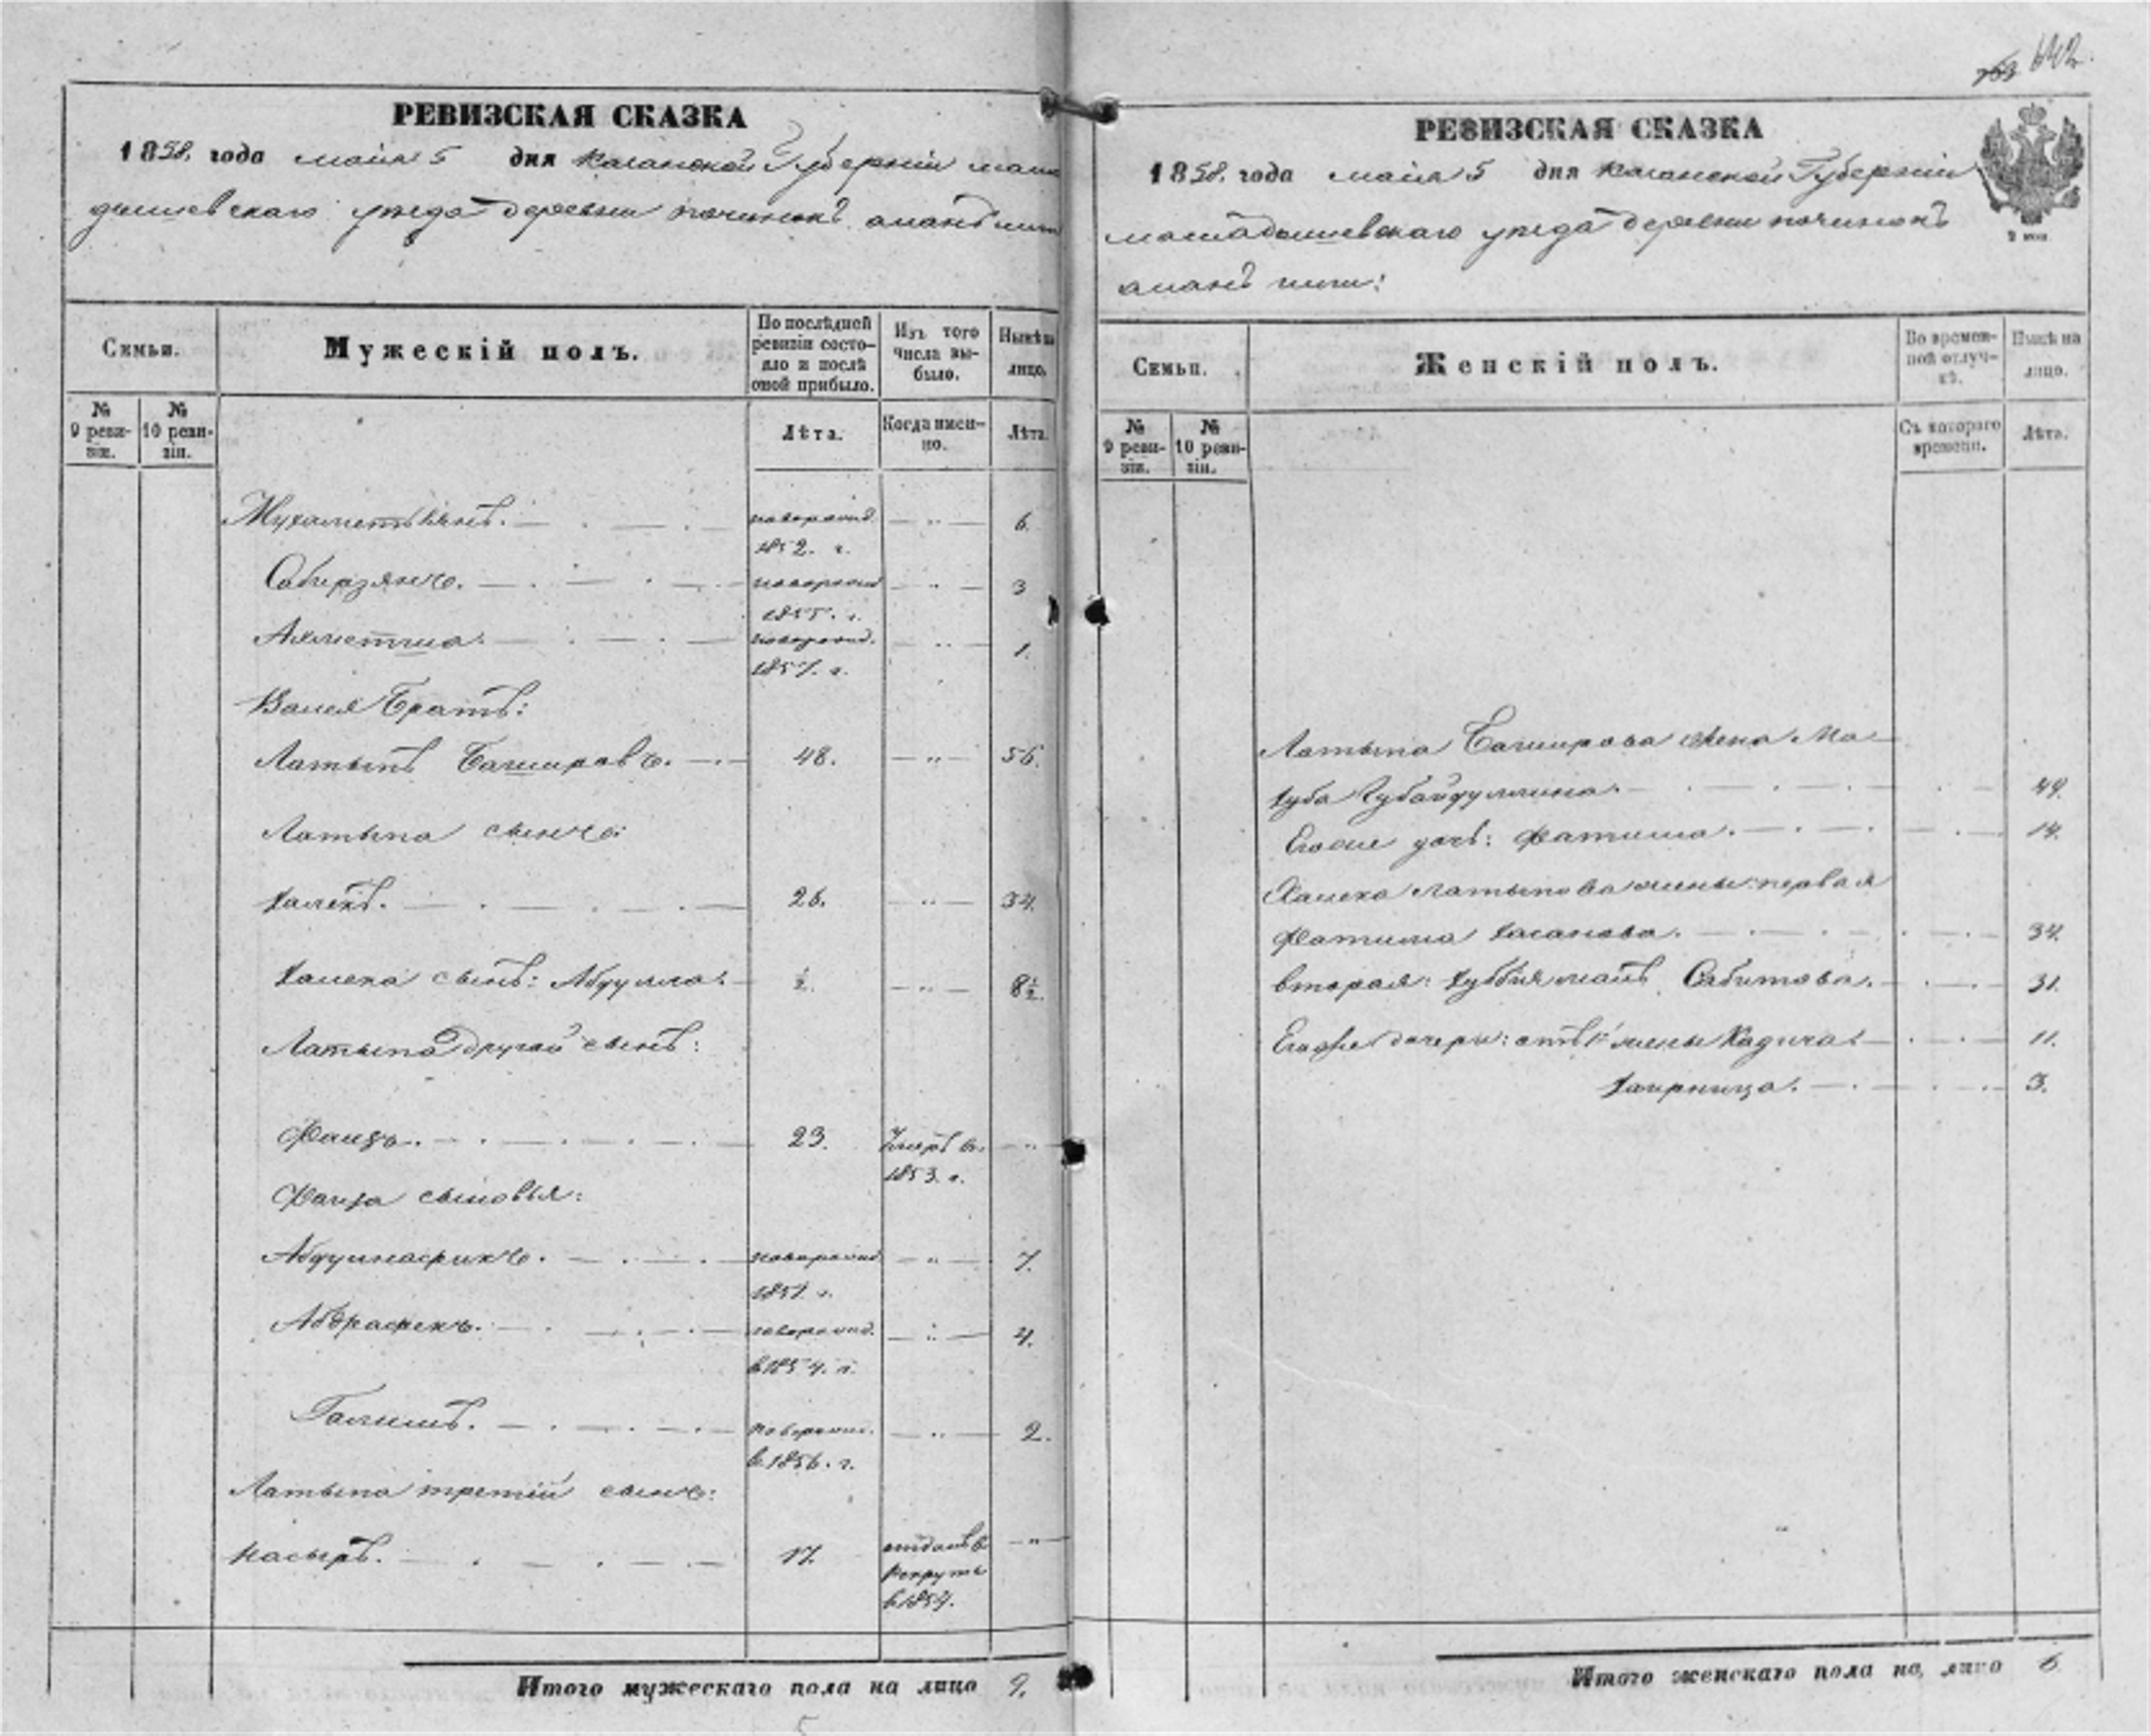 642.
РЕВИЗСКАЯ СКАЗКА
1858. года мая 5 дня Казанской Губернии мама
дышевскаго уезда деревни починокъ
Семьи.
Мужескій полъ.
По послѣдней ревизіи состояло и послѣ оной прибыло.
Изъ того числа выбыло.
Нынѣ на лицо.
№ 9 ревизіи.
№ 10 ревизіи.
Лѣта.
Когда именно.
Лѣта.
Мухаметзянъ. новорожд. 1852. г. — " — 6.
Сабирзянъ. новорожд 1855. г. — " — 3
Ахметша. новорожд. 1857. г. — " — 1.
Валея Братъ:
Латыпъ Башировъ. 48. — " — 56.
Латыпа сынъ:
Халекъ. 26. — " — 34.
Халека сынъ: Абдулла. ½. — " — 8½.
Латыпа другой сынъ:
Фаизъ. 23. Умеръ въ 1853. г. — " —
Фаиза сыновья:
новорожд 1851. г. — " — 7.
новорожд. в 1854. г. — " — 4.
Галимъ. новорожд. в 1856. г. — " — 2.
Латыпа третій сынъ:
Насыръ. 17. отданъ в рекруты в 1854. — " —
Итого мужескаго пола на лицо 9.
РЕВИЗСКАЯ СКАЗКА
1858. года мая 5 дня Казанской Губернии
мамадышевскаго уезда деревни починокъ
2 коп.
Семьи.
Женскій полъ.
Во временной отлучкѣ.
Нынѣ на лицо.
№ 9 ревизіи.
№ 10 ревизіи.
Съ котораго времени.
Лѣта.
Латыпа Баширова жена Ма-
хуба Губайдуллина. 49.
Егоже дочь: Фатима. 14.
Халека Латыпова жены: первая
Фатима Хасанова. 34.
вторая: Сабитова. 31.
Егоже дочери: отъ 1й жены Хадича. 11.
Хаирниза. 3.
Итого женскаго пола на лицо 6.